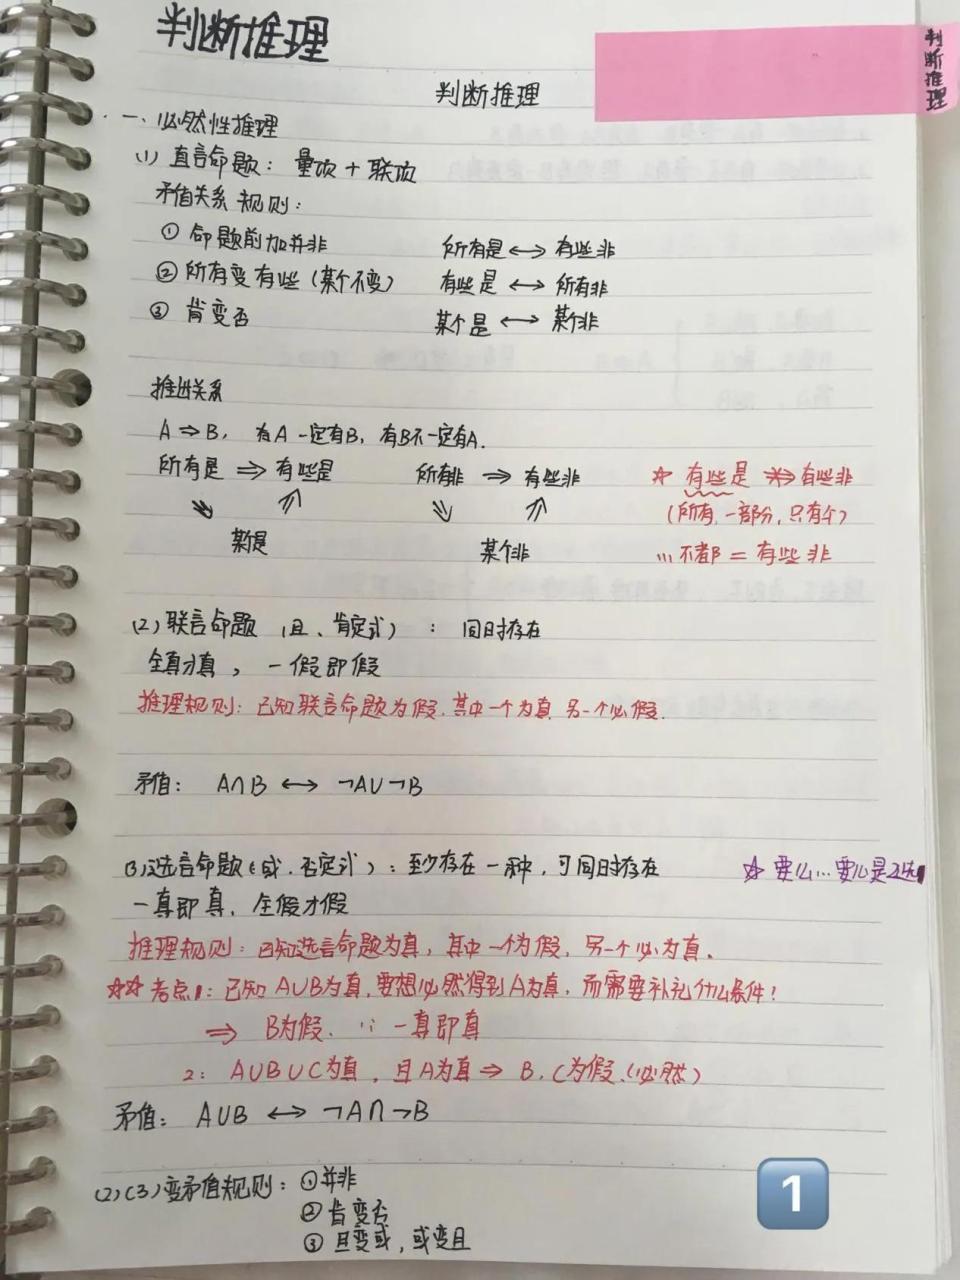 判断推理
判断推理
判断推理
一、必然性推理
(1) 直言命题：量项 + 联项
矛盾关系规则：
① 命题前加并非 所有是 ↔ 有些非
② 所有变有些（某个不变） 有些是 ↔ 所有非
③ 肯变否 某个是 ↔ 某个非
推出关系
A ⇒ B, 有A一定有B, 有B不一定有A.
所有是 ⇒ 有些是 所有非 ⇒ 有些非 ☆ 有些是 ⇏ 有些非
⇘ ⇗ ⇘ ⇗ (所有, 一部分, 只有个)
某是 某个非 … 不都 = 有些非
(2) 联言命题 (且、肯定式)：同时存在
全真才真, 一假即假
推理规则：已知联言命题为假, 其中一个为真 另一个必假.
矛盾： A∩B ↔ ¬A∪¬B
(3) 选言命题(或、否定式)：至少存在一种, 可同时存在 ☆ 要么…要么是2选1
一真即真, 全假才假
推理规则：已知选言命题为真, 其中一个为假, 另一个必为真.
☆☆ 考点1：已知 A∪B为真, 要想必然得到A为真, 而需要补充什么条件!
⇒ B为假. ∵ 一真即真
2： A∪B∪C为真, 且A为真 ⇒ B、C为假、(必然)
矛盾： A∪B ↔ ¬A∩¬B
(2)(3)变矛盾规则：①并非
② 肯变否
③ 且变或, 或变且
1